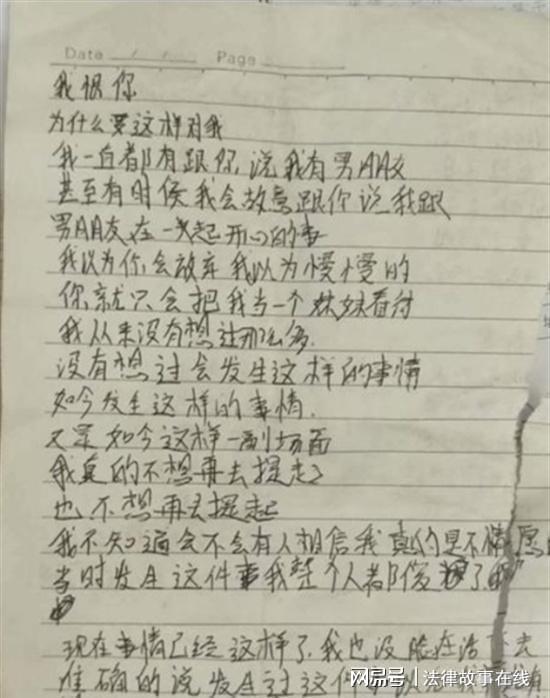 Date / / Page
我恨你
为什么要这样对我
我一直都有跟你说我有男朋友
甚至有时候我会故意跟你说我跟
男朋友在一起开心的事
我以为你会放弃我以为慢慢的
你就只会把我当一个妹妹看待
我从来没有想过那么多.
没有想过会发生这样的事情
如今发生这样的事情.
又是如今这样一副场面
我真的不想再去提起
也不想再去提起
我不知道会不会有人相信我真的是不情愿
当时发生这件事我整个人都傻了
现在事情已经这样了.我也没脸在活下去
准确的说发生过这件
网易号 | 法律故事在线